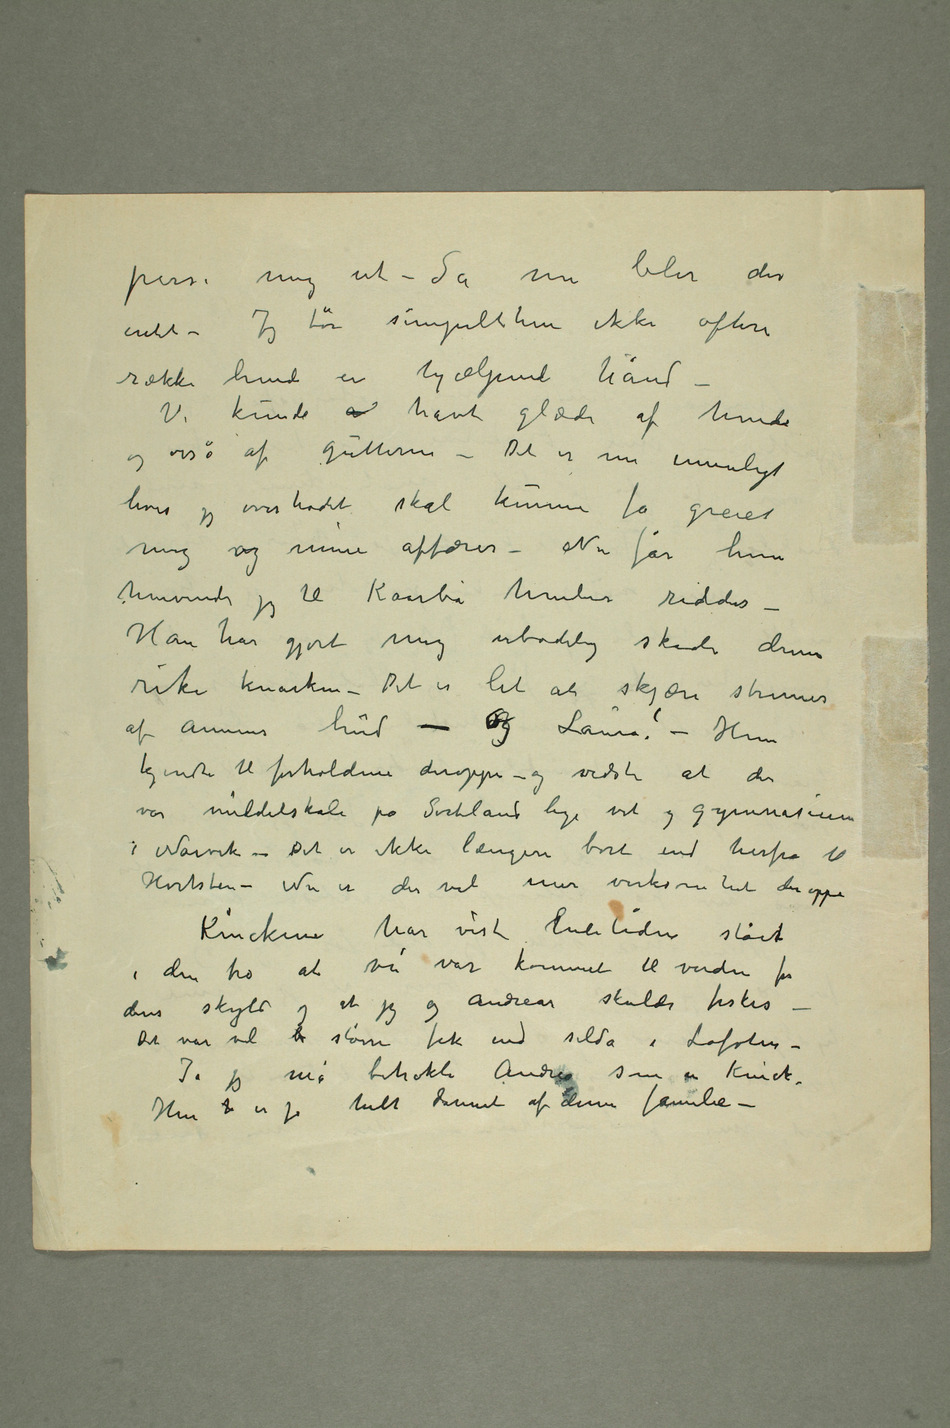 perse mig ut – Så nu blir der
intet – Jeg tör simpelthen ikke oftere
række hende en hjælpende hånd –
Vi kunde havt glæde af hende
og også af gutterne – Det er nu umuligt
hvis jeg overhodet skal kunne få greiet
mig og mine affærer – Nu får hun
henvende jeg til Kaarbø hendes ridder –
Han har gjort mig ubodelig skade denne
rike knarken – Det er let at skjære strimer
af annens hud — Og Laura! – Hun
kjendte til forholdene deroppe – og vidste at der
var middelskole på Sortland lige ved og gymnasium
i Narvik – Det er ikke længere bort end herfra til
Horsten – Nu er der vel mer virksomhet deroppe
Kinckene har vist hele tiden stået
i den tro at vi var kommet til verden for
deres skyld og at jeg og Andreas skulde fiskes –
Det var vel större fisk end silda i Lofoten –
Ja jeg må betrakte Andrea som en Kinck.
Hun er jo helt dannet af denne familie –